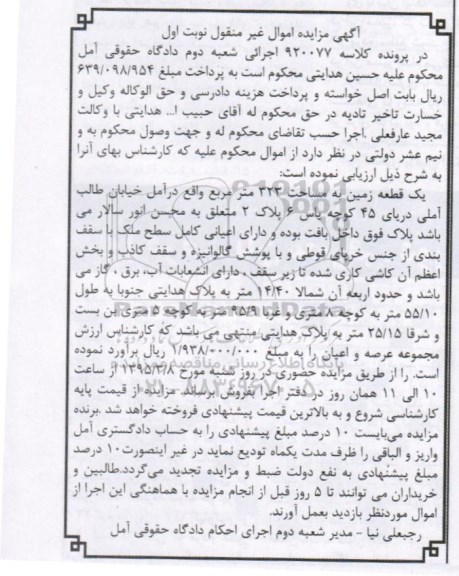 آگهی مزایده اموال غیر منقول نوبت اول
در پرونده کلاسه ۹۲۰۰۷۷ اجرائی شعبه دوم دادگاه حقوقی آمل
محکوم علیه حسین هدایتی محکوم است به پرداخت مبلغ ۶۳۹/۰۹۸/۹۵۴
ریال بابت اصل خواسته و پرداخت هزینه دادرسی و حق الوکاله وکیل و
خسارت تاخیر تادیه در حق محکوم له آقای حبیب ا... هدایتی با وکالت
مجید عارفعلی .اجرا حسب تقاضای محکوم له و جهت وصول محکوم به و
نیم عشر دولتی در نظر دارد از اموال محکوم علیه که کارشناس بهای آنرا
به شرح ذیل ارزیابی نموده است:
یک قطعه زمین به مساحت ۳۲۳ متر مربع واقع درآمل خیابان طالب
آملی دریای ۴۵ کوچه یاس ۶ پلاک ۲ متعلق به محسن انور سالار می
باشد پلاک فوق داخل بافت بوده و دارای اعیانی کامل سطح ملک با سقف
بندی از جنس خرپای قوطی و با پوشش گالوانیزه و سقف کاذب و بخش
اعظم آن کاشی کاری شده تا زیر سقف ، دارای انشعابات آب، برق ، گاز می
باشد و حدود اربعه آن شمالا ۱۴/۴۰ متر به پلاک هدایتی جنوبا به طول
۵۵/۱۰ متر به کوچه ۸ متری و غربا ۹۵/۹ متر به کوچه ۵ متری بن بست
و شرقا ۲۵/۱۵ متر به پلاک هدایتی منتهی می باشد که کارشناس ارزش
مجموعه عرصه و اعیان را به مبلغ ۱/۹۳۸/۰۰۰/۰۰۰ ریال برآورد نموده
است. را از طریق مزایده حضوری در روز شنبه مورخ ۱۳۹۵/۳/۸ از ساعت
۱۰ الی ۱۱ همان روز در دفتر اجرا بفروش برساند. مزایده از قیمت پایه
کارشناسی شروع و به بالاترین قیمت پیشنهادی فروخته خواهد شد .برنده
مزایده می‌بایست ۱۰ درصد مبلغ پیشنهادی را به حساب دادگستری آمل
واریز و الباقی را ظرف مدت یکماه تودیع نماید در غیر اینصورت۱۰ درصد
مبلغ پیشنهادی به نفع دولت ضبط و مزایده تجدید می‌گردد.طالبین و
خریداران می توانند تا ۵ روز قبل از انجام مزایده با هماهنگی این اجرا از
اموال موردنظر بازدید بعمل آورند.
رجبعلی نیا - مدیر شعبه دوم اجرای احکام دادگاه حقوقی آمل